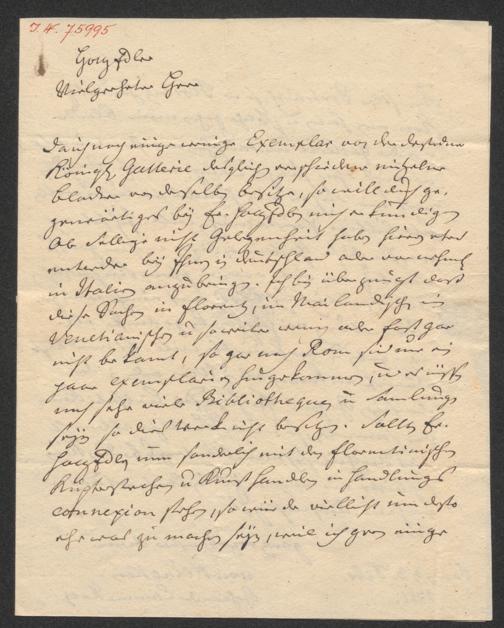 I. N. 75995
HochEdler
Vielgeehrter Herr
da ich noch einige wenige Exemplar von der dresdner
Königl. Gallerie desgleich verschiedene einzelne
blaetter von derselben besitze, so will mich ge-
genwärtiges bey Er. HochEdlen mich erkundigen
Ob selbige nicht Gelegenheit haben hiervon etwas
entweder bey Ihnen in deutschland oder vornehml.
in Italien anzubringen. Ich bin überzeugt dass
diese Sachen in florentz, im Mailandischen, im
Venetianischen u so weiter wenig oder fast gar
nicht bekannt, so gar nach Rom sind nur ein
paar exemplarien hingekommen, und es müssen
noch sehr viele Bibliothequen u Samlungen
seyn so dies werk nicht besitzen. Sollten Er.
HochEdlen nun sonderlich mit den florentinischen
Kupferstechern u Kunst handlern in handlungs
connexion stehen, so würde vielleicht um desto
eher was zu machen seyn, weil ich gern einige